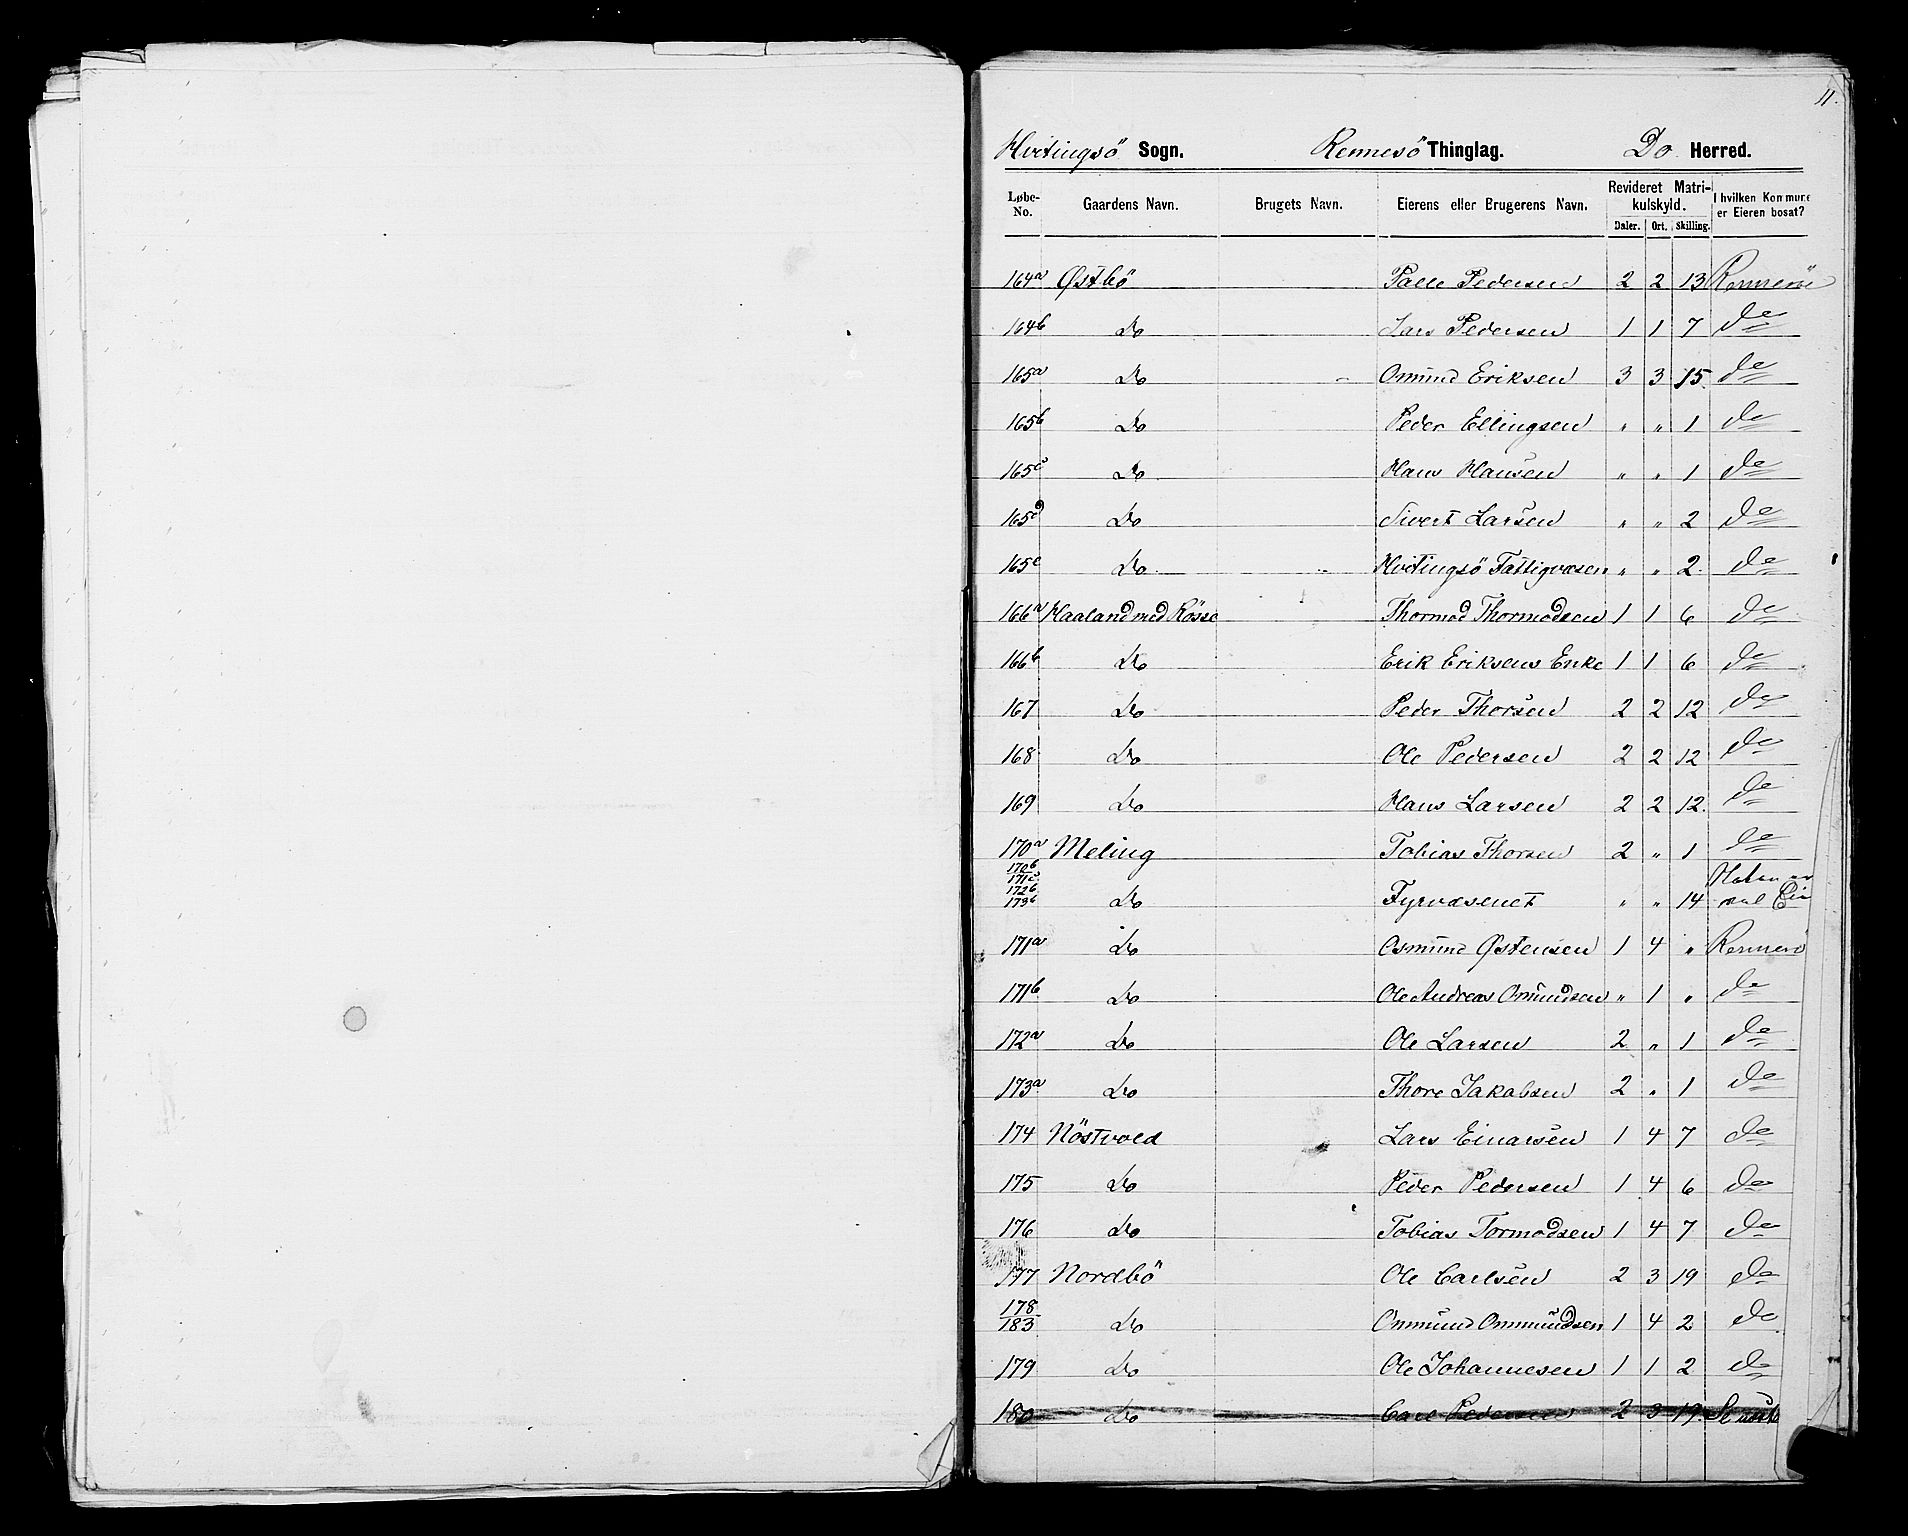 11.
Hvitingsö Sogn. Rennesö Thinglag. Do Herred.
Løbe-No. Gaardens Navn. Brugets Navn. Eierens eller Brugerens Navn. Revideret Matrikulskyld. Daler. Ort. Skilling. I hvilken Kommune er Eieren bosat?
164a Østbö Palle Pedersen 2 2 13 Rennesö
164b Do Lars Pedersen 1 1 7 do
165a Do Omund Eriksen 3 3 15 do
165b Do Peder Ellingsen " " 1 do
165c Do Hans Hansen " " 1 do
165d Do Sivert Larsen " " 2 do
165e Do Hvitingsö Fattigvæsen " " 2 do
166a Haaland med Rösse Thormod Thormodsen 1 1 6 do
166b Do Erik Eriksens Enke 1 1 6 do
167 Do Peder Thorsen 2 2 12 do
168 Do Ole Pedersen 2 2 12 do
169 Do Hans Larsen 2 2 12 do
170a Meling Tobias Thorsen 2 " 1 do
170b 171c 172b 173b Do Fyrvæsenet " " 14
171a Do Osmund Østensen 1 4 " Rennesö
171b Do Ole Andreas Omundsen " 1 " do
172a Do Ole Larsen 2 " 1 do
173a Do Thore Jakobsen 2 " 1 do
174 Nöstvold Lars Einarsen 1 4 7 do
175 Do Peder Pedersen 1 4 6 do
176 Do Tobias Tormodsen 1 4 7 do
177 Nordbö Ole Carlsen 2 3 19 do
178/183 Do Ommund Ommundsen 1 4 2 do
179 Do Ole Johannesen 1 1 2 do
180 Do Carl Pedersen 2 3 19